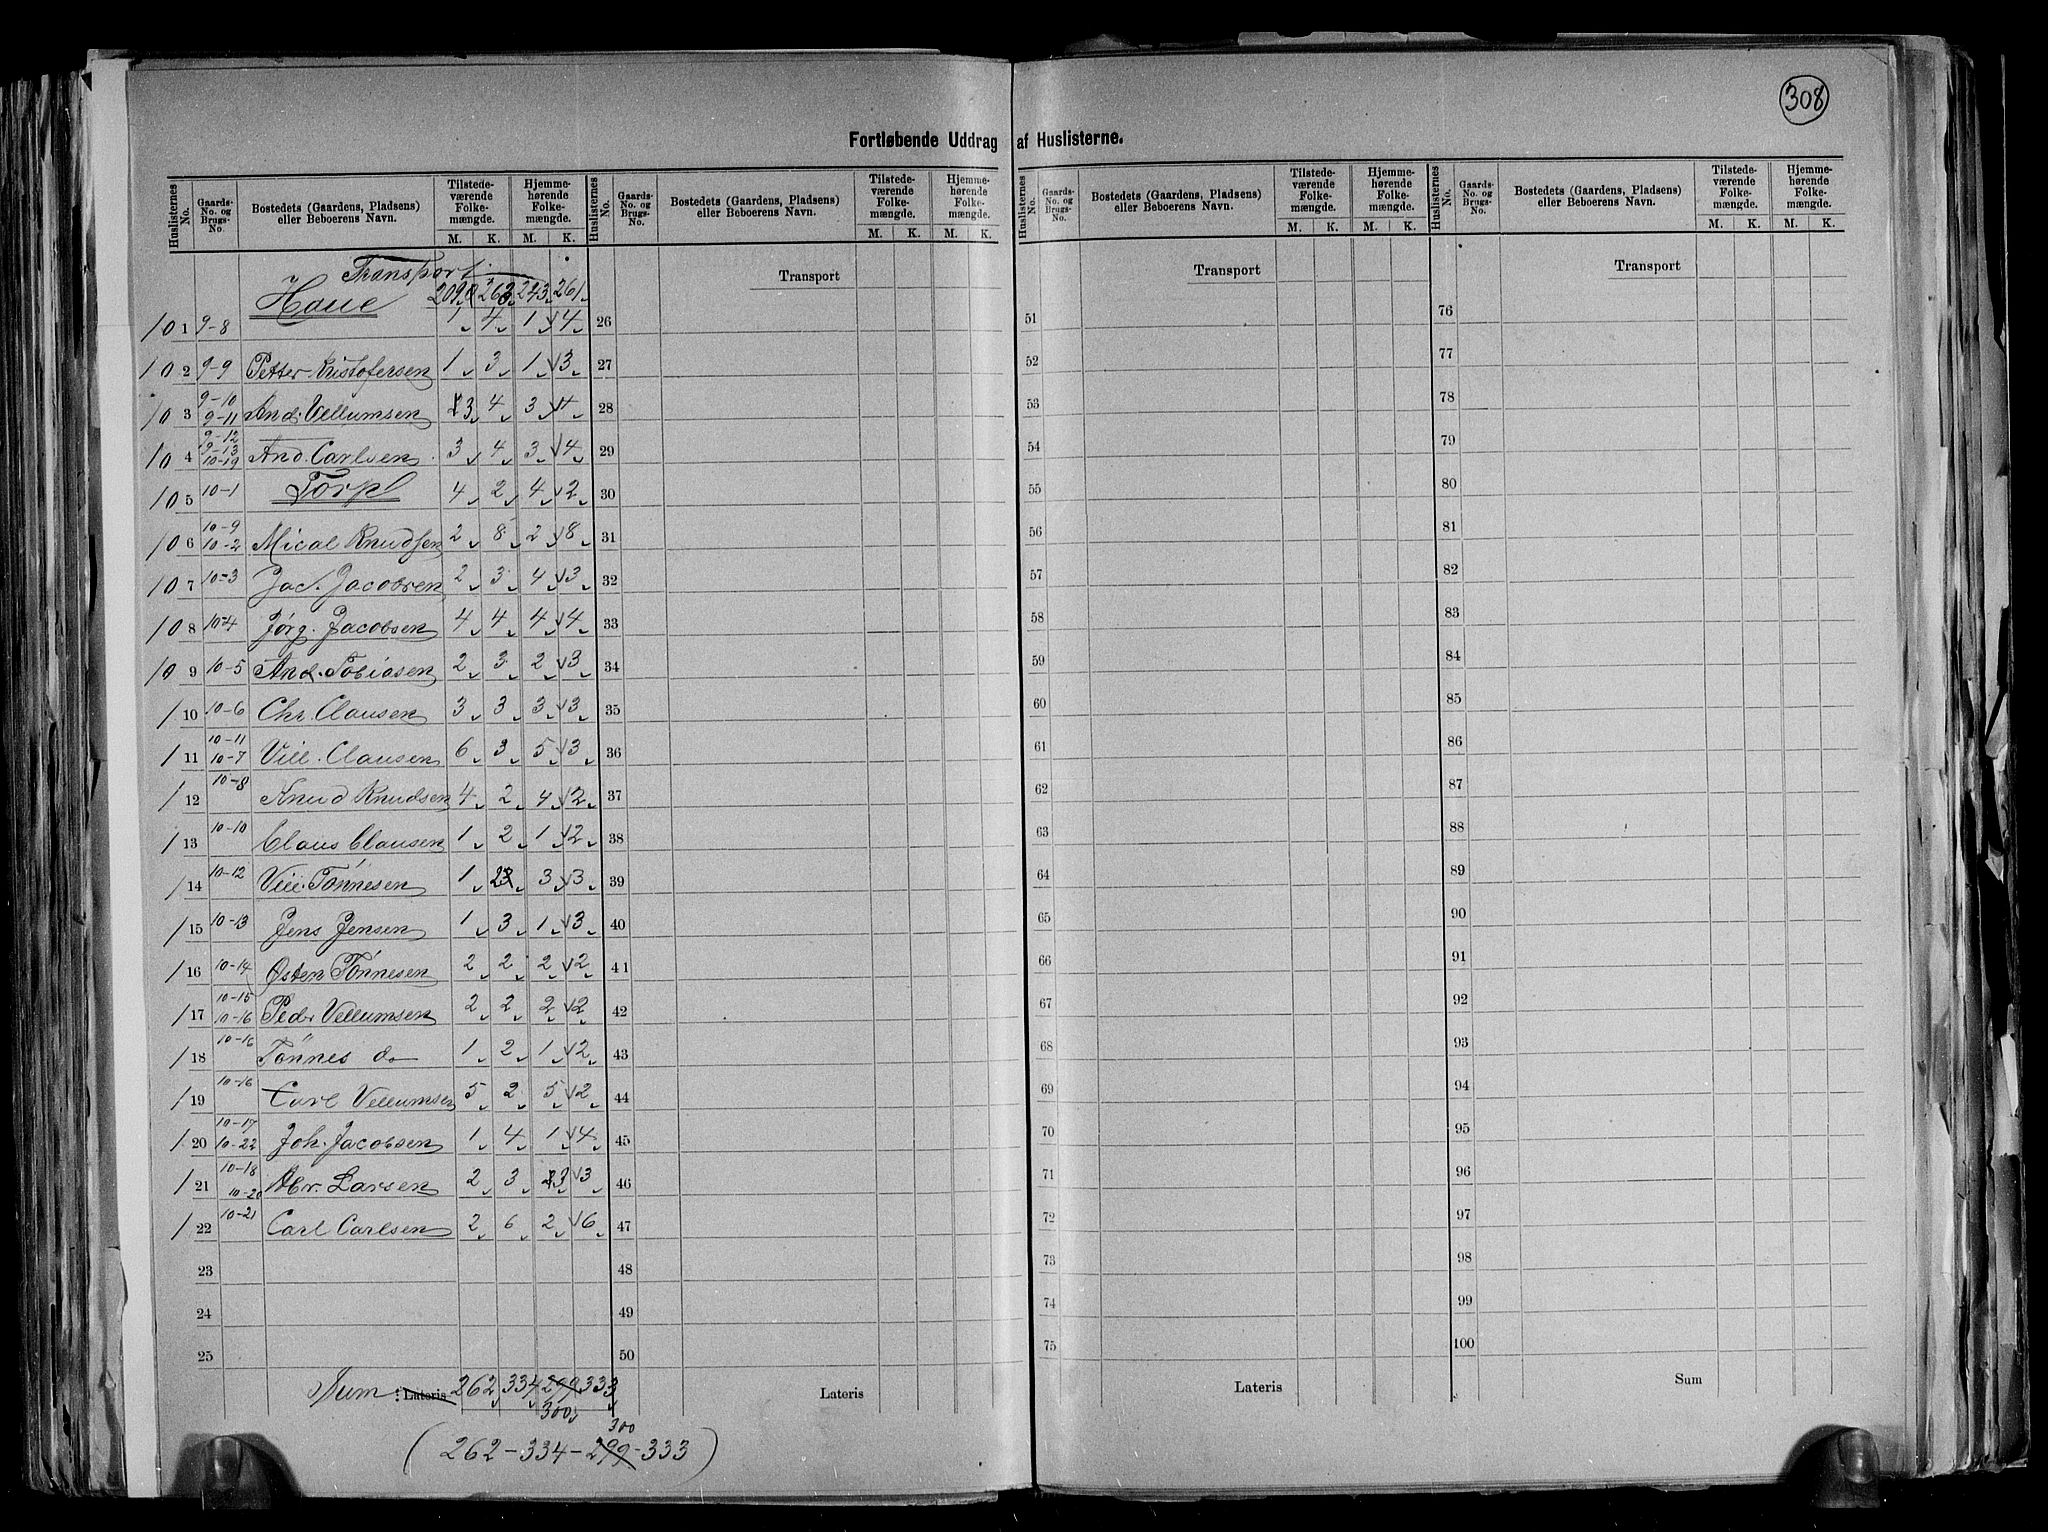 308
Fortløbende Uddrag af Huslisterne.
Huslisternes No. Gaards-No. og Brugs-No. Bostedets (Gaardens, Pladsens) eller Beboerens Navn. Tilstedeværende Folkemængde. M. K. Hjemmehørende Folkemængde. M. K.
Transport 209 263 243 261
101 9-8 Haue 1 4 1 4
102 9-9 Petter Kristofersen 1 3 1 3
103 9-10 9-11 And. Vellumsen 3 4 3 4
104 9-12 9-13 10-19 And. Carlsen 3 4 3 4
105 10-1 Torp 4 2 4 2
106 10-9 10-2 Mical Knudsen 2 8 2 8
107 10-3 Jac. Jacobsen 2 3 4 3
108 10-4 Jørg. Jacobsen 4 4 4 4
109 10-5 And. Tobiasen 2 3 2 3
110 10-6 Chr. Clausen 3 3 3 3
111 10-11 10-7 Vill. Clausen 6 3 5 3
112 10-8 Knud Knudsen 4 2 4 2
113 10-10 Claus Clausen 1 2 1 2
114 10-12 Vill. Tönnesen 1 2 3 3
115 10-13 Jens Jensen 1 3 1 3
116 10-14 Østen Tönnesen 2 2 2 2
117 10-15 10-16 Peder Vellumsen 2 2 2 2
118 10-16 Tönnes do 1 2 1 2
119 10-16 Carl Vellumsen 5 2 5 2
120 10-17 10-22 Joh. Jacobsen 1 4 1 4
121 10-18 10-20 Abr. Larsen 2 3 3 3
122 10-21 Carl Carlsen 2 6 2 6
23
24
25
Sum Lateris 262 334 299 333
300
300
(262-334-299-333)
Huslisternes No. Gaards-No. og Brugs-No. Bostedets (Gaardens, Pladsens) eller Beboerens Navn. Tilstedeværende Folkemængde. M. K. Hjemmehørende Folkemængde. M. K.
Transport
26
27
28
29
30
31
32
33
34
35
36
37
38
39
40
41
42
43
44
45
46
47
48
49
50
Lateris
Huslisternes No. Gaards-No. og Brugs-No. Bostedets (Gaardens, Pladsens) eller Beboerens Navn. Tilstedeværende Folkemængde. M. K. Hjemmehørende Folkemængde. M. K.
Transport
51
52
53
54
55
56
57
58
59
60
61
62
63
64
65
66
67
68
69
70
71
72
73
74
75
Lateris
Huslisternes No. Gaards-No. og Brugs-No. Bostedets (Gaardens, Pladsens) eller Beboerens Navn. Tilstedeværende Folkemængde. M. K. Hjemmehørende Folkemængde. M. K.
Transport
76
77
78
79
80
81
82
83
84
85
86
87
88
89
90
91
92
93
94
95
96
97
98
99
100
Sum